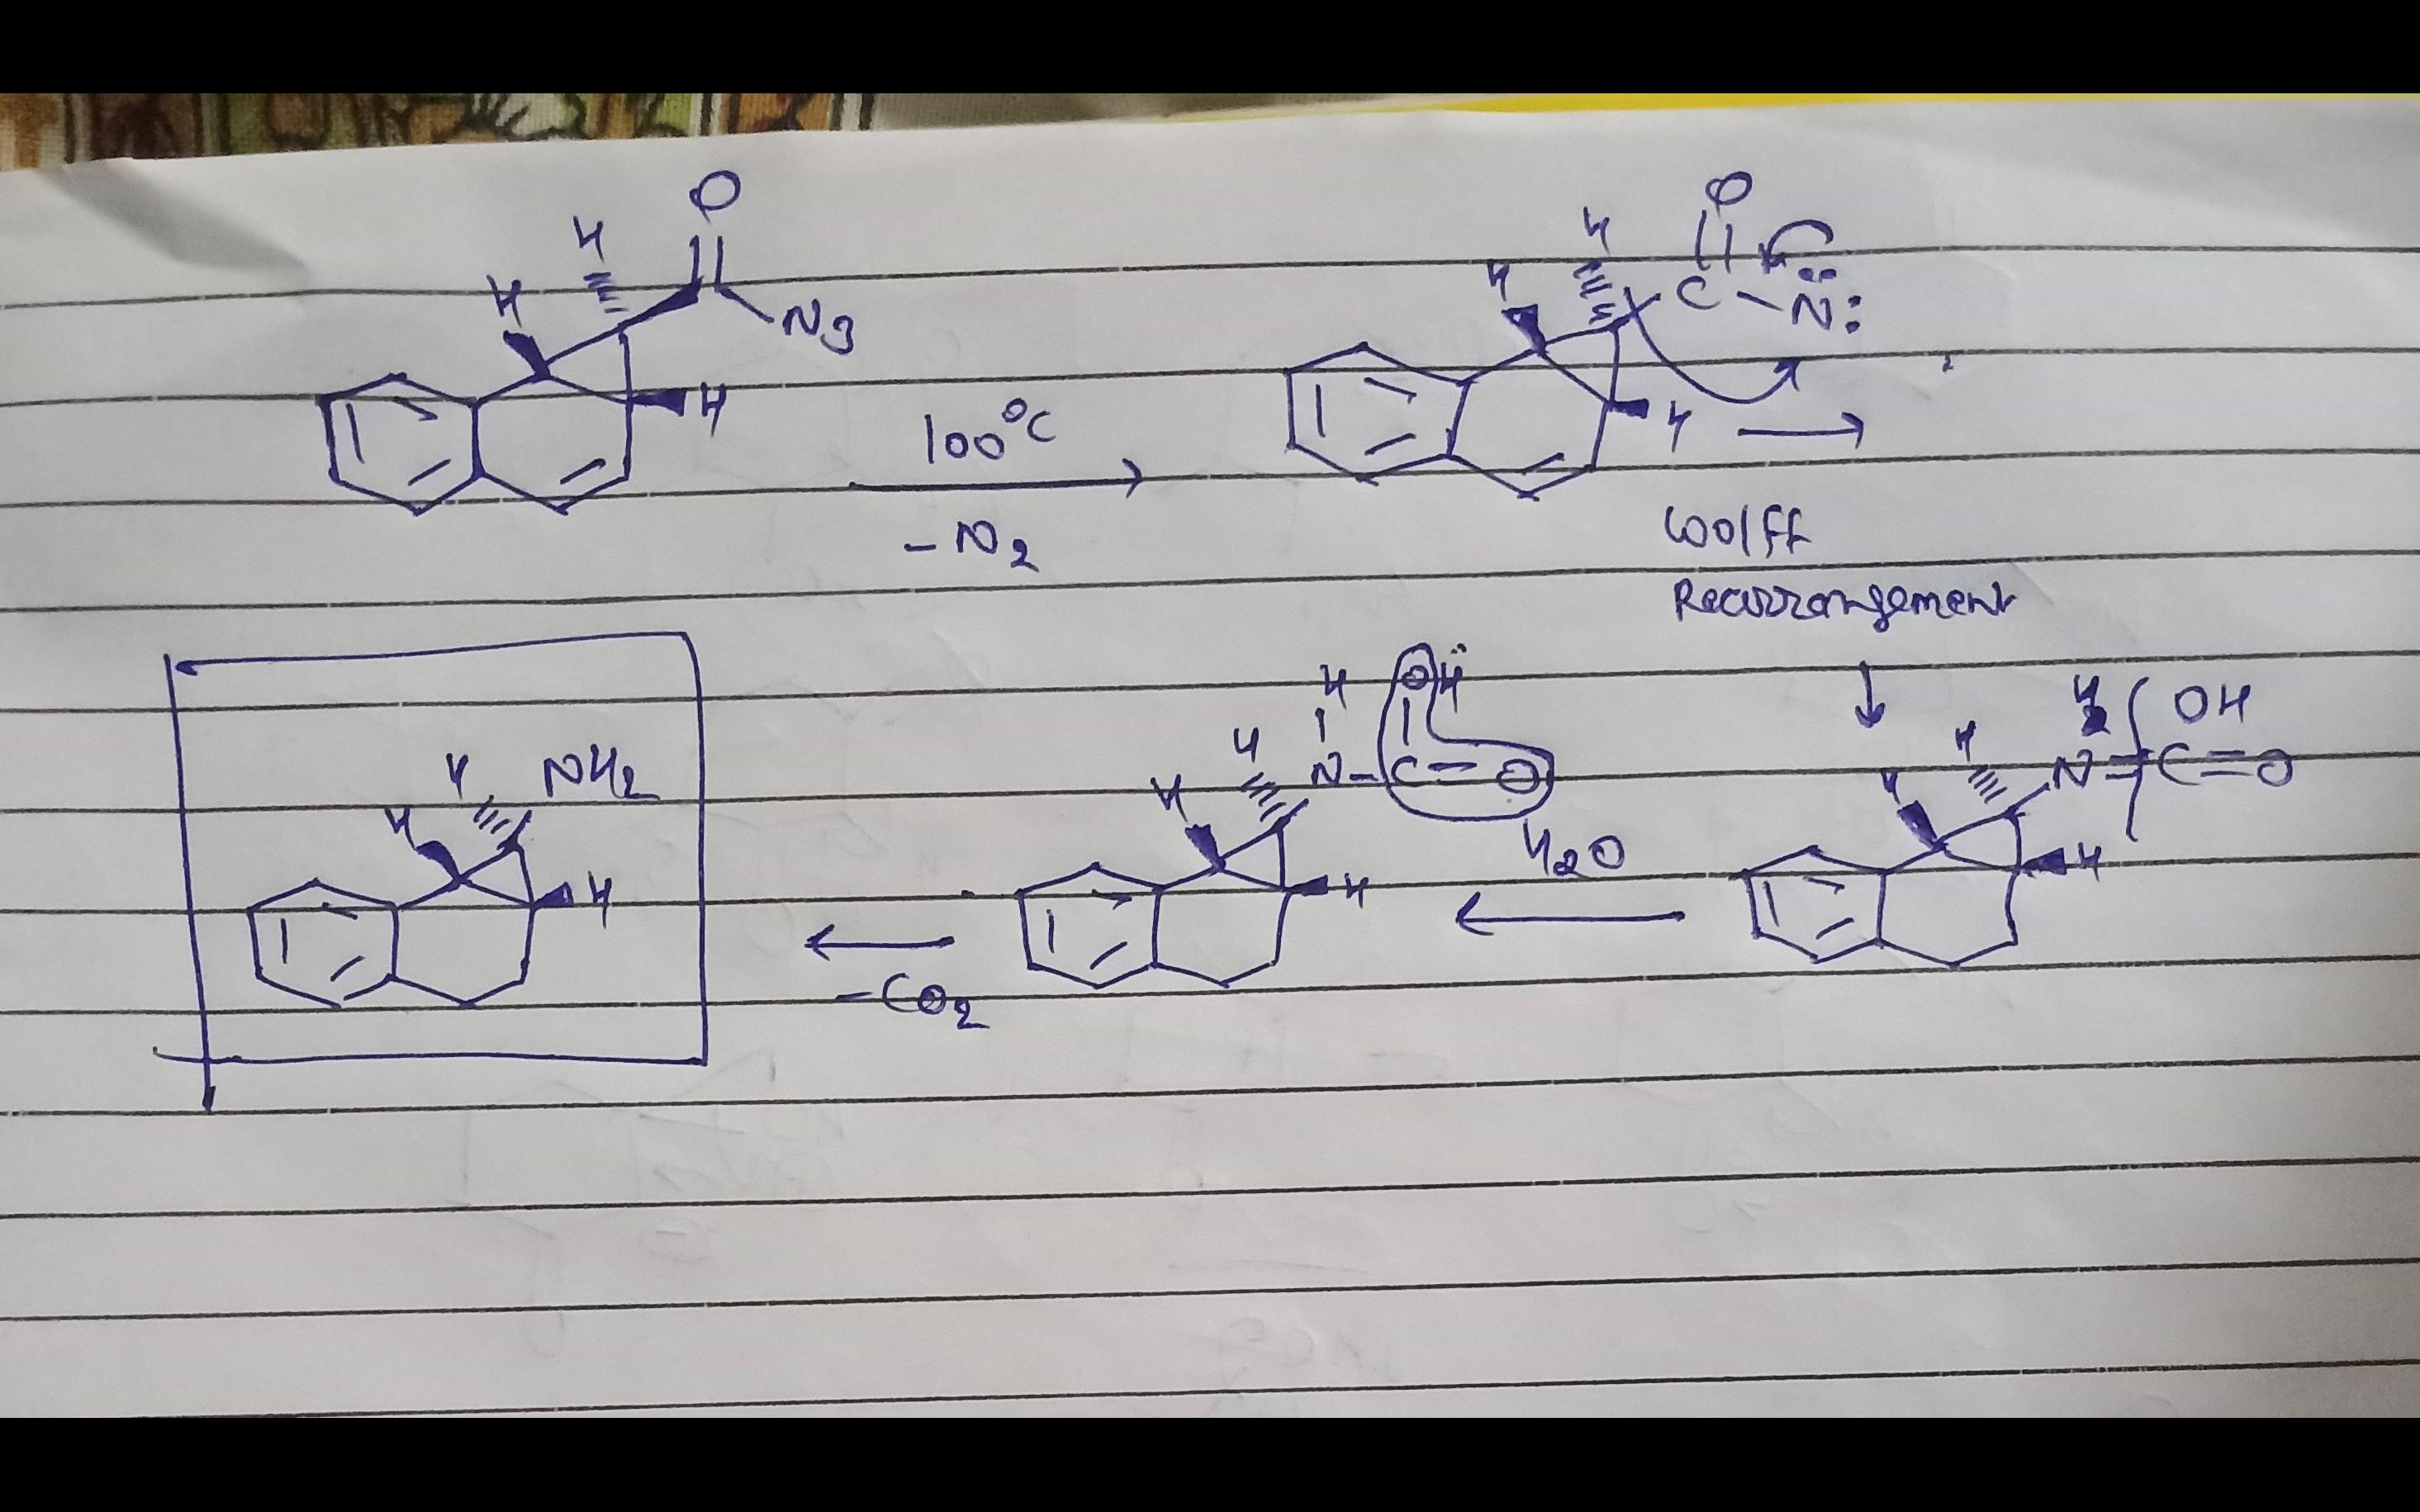 O
H
H
N3
H
100°C
- N2
O
H
H
C - N:
H
Woolff
Rearrangement
H
OH
H
N = C = O
H
H
H
OH
H
N - C = O
H
H
H2O
H
NH2
H
H
- CO2